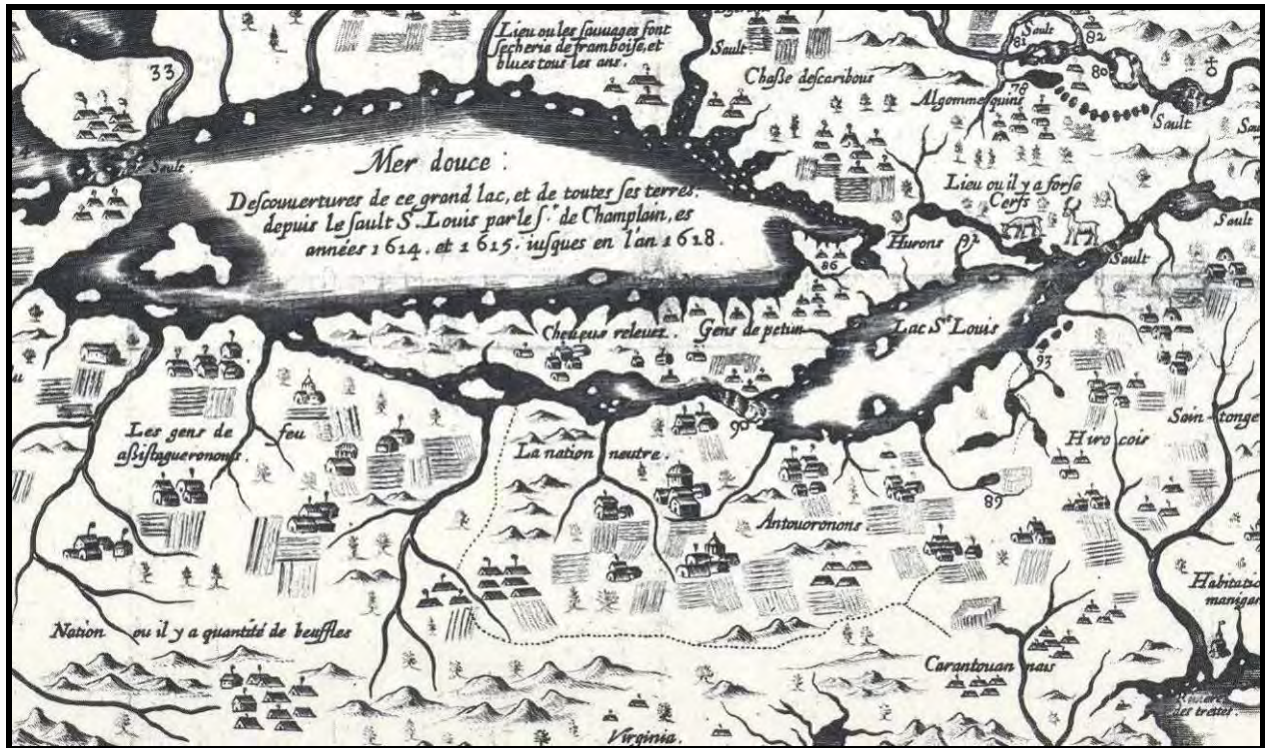 Lieu ou les sauuages font
secherie de framboise, et
blues tous les ans.
Sault
Sault
81
82
33
Chaße des caribous
80
78
Algommequins
Sault
Sault
Mer douce :
Descouuertures de ce grand lac, et de toutes ses terres.
depuis le sault St. Louis par le sr. de Champlain, es
années 1614. et 1615. iusques en l'an 1618.
Lieu ou il y a forse
Cerfs
Sault
Hurons
92
Sault
86
Cheueus releuez.
Gens de petun
Lac St Louis
93
Les gens de feu
aßistagueronons.
90
La nation neutre.
Hirocois
Sain-tonge
89
Antouoronons
Habitatio
manigan
Nation ou il y a quantité de beuffles
Carantouannais
des trettes.
Virginia.